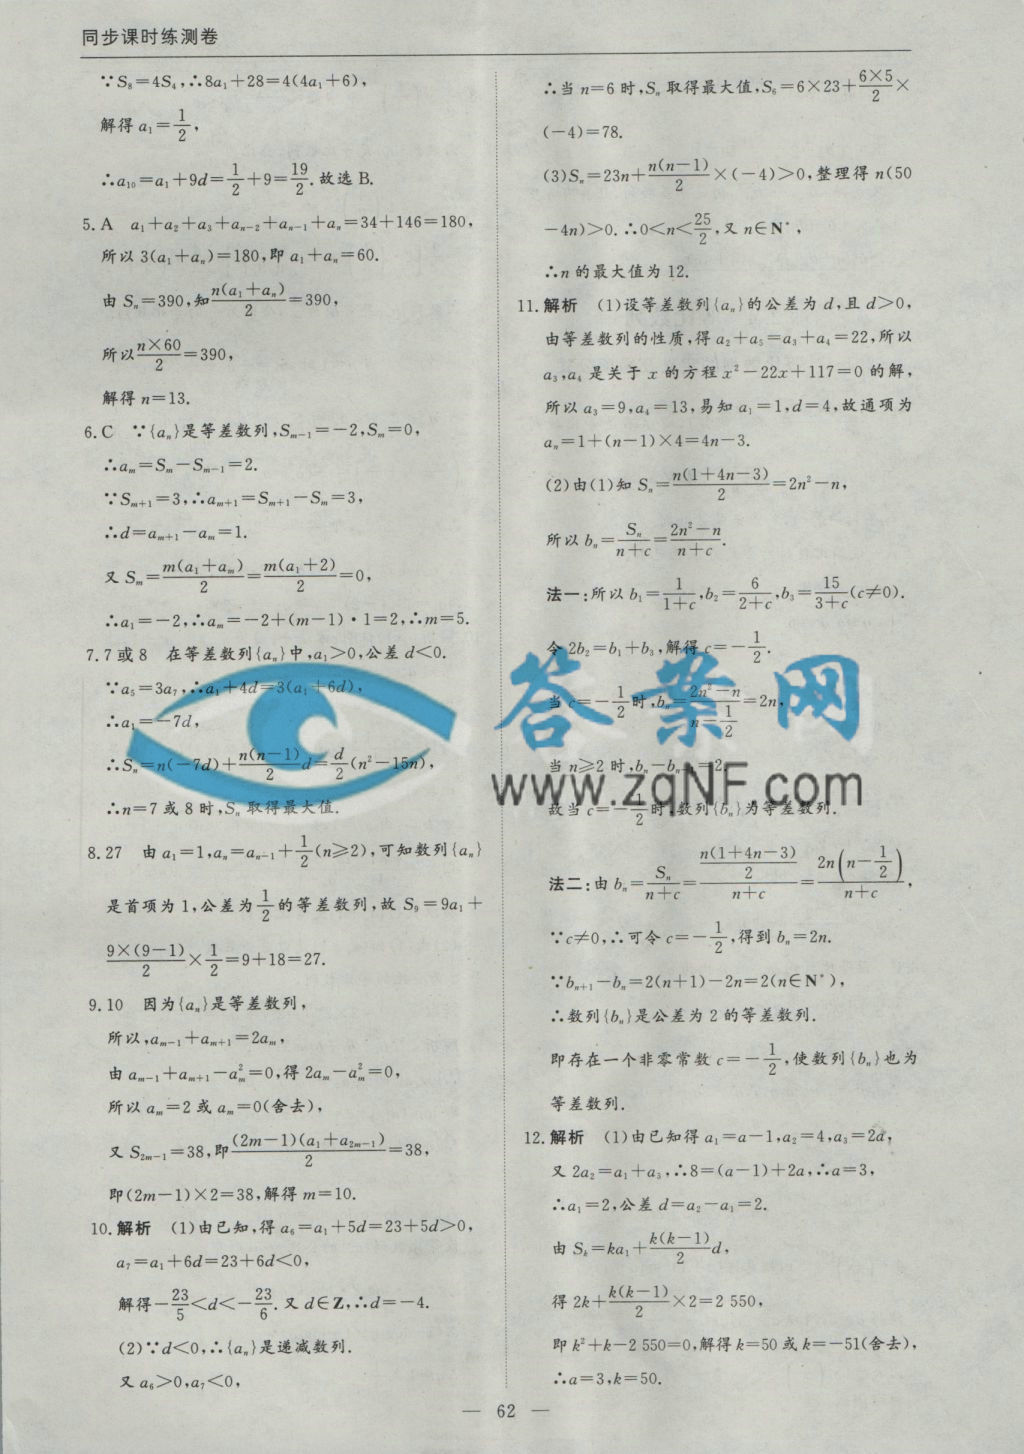 同步课时练测卷
∵S₈=4S₄,∴8a₁+28=4(4a₁+6),
解得 a₁=1/2,
∴a₁₀=a₁+9d=1/2+9=19/2.故选 B.
5. A a₁+a₂+a₃+aₙ₋₂+aₙ₋₁+aₙ=34+146=180,
所以 3(a₁+aₙ)=180,即 a₁+aₙ=60.
由 Sₙ=390,知 n(a₁+aₙ)/2=390,
所以 n×60/2=390,
解得 n=13.
6. C ∵{aₙ}是等差数列,Sₘ₋₁=-2,Sₘ=0,
∴aₘ=Sₘ-Sₘ₋₁=2.
∵Sₘ₊₁=3,∴aₘ₊₁=Sₘ₊₁-Sₘ=3,
∴d=aₘ₊₁-aₘ=1.
又 Sₘ=m(a₁+aₘ)/2=m(a₁+2)/2=0,
∴a₁=-2,∴aₘ=-2+(m-1)·1=2,∴m=5.
7. 7 或 8 在等差数列{aₙ}中,a₁>0,公差 d<0.
∵a₅=3a₇,∴a₁+4d=3(a₁+6d),
∴a₁=-7d,
∴Sₙ=n(-7d)+n(n-1)/2 d=d/2(n²-15n),
∴n=7 或 8 时,Sₙ 取得最大值.
8. 27 由 a₁=1,aₙ=aₙ₋₁+1/2(n≥2),可知数列{aₙ}
是首项为 1,公差为1/2的等差数列,故 S₉=9a₁+
9×(9-1)/2×1/2=9+18=27.
9. 10 因为{aₙ}是等差数列,
所以,aₘ₋₁+aₘ₊₁=2aₘ,
由 aₘ₋₁+aₘ₊₁-aₘ²=0,得 2aₘ-aₘ²=0,
所以 aₘ=2 或 aₘ=0(舍去),
又 S₂ₘ₋₁=38,即(2m-1)(a₁+a₂ₘ₋₁)/2=38,
即(2m-1)×2=38,解得 m=10.
10. 解析 (1)由已知,得 a₆=a₁+5d=23+5d>0,
a₇=a₁+6d=23+6d<0,
解得-23/5<d<-23/6.又 d∈Z,∴d=-4.
(2)∵d<0,∴{aₙ}是递减数列.
又 a₆>0,a₇<0,
∴当 n=6 时,Sₙ 取得最大值,S₆=6×23+6×5/2×
(-4)=78.
(3)Sₙ=23n+n(n-1)/2×(-4)>0,整理得 n(50
-4n)>0.∴0<n<25/2,又 n∈N*,
∴n 的最大值为 12.
11. 解析 (1)设等差数列{aₙ}的公差为 d,且 d>0,
由等差数列的性质,得 a₂+a₅=a₃+a₄=22,所以
a₃,a₄ 是关于 x 的方程 x²-22x+117=0 的解,
所以 a₃=9,a₄=13,易知 a₁=1,d=4,故通项为
aₙ=1+(n-1)×4=4n-3.
(2)由(1)知 Sₙ=n(1+4n-3)/2=2n²-n,
所以 bₙ=Sₙ/(n+c)=(2n²-n)/(n+c).
法一:所以 b₁=1/(1+c),b₂=6/(2+c),b₃=15/(3+c)(c≠0).
令 2b₂=b₁+b₃,解得 c=-1/2.
当 c=-1/2时,bₙ=(2n²-n)/(n-1/2)=2n,
当 n≥2 时,bₙ-bₙ₋₁=2.
故当 c=-1/2时,数列{bₙ}为等差数列.
法二:由 bₙ=Sₙ/(n+c)=(n(1+4n-3)/2)/(n+c)=2n(n-1/2)/(n+c),
∵c≠0,∴可令 c=-1/2,得到 bₙ=2n.
∵bₙ₊₁-bₙ=2(n+1)-2n=2(n∈N*),
∴数列{bₙ}是公差为 2 的等差数列.
即存在一个非零常数 c=-1/2,使数列{bₙ}也为
等差数列.
12. 解析 (1)由已知得 a₁=a-1,a₂=4,a₃=2a,
又 2a₂=a₁+a₃,∴8=(a-1)+2a,∴a=3,
∴a₁=2,公差 d=a₂-a₁=2.
由 Sₖ=ka₁+k(k-1)/2 d,
得 2k+k(k-1)/2×2=2 550,
即 k²+k-2 550=0,解得 k=50 或 k=-51(舍去),
∴a=3,k=50.
答案网
www.zqNF.com
— 62 —